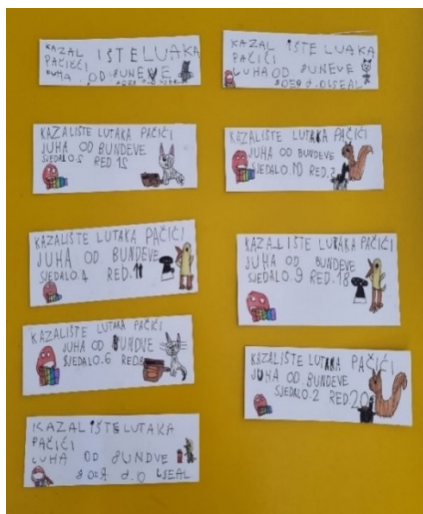 KAZAL IŠTE LUAKA
PAČIĆI
JUHA OD BUNEVE
KAZAL IŠTE LUAKA
PAČIĆI
LUHA OD BUNEVE
KAZALIŠTE LUTAKA PAČIĆI
JUHA OD BUNDEVE
SJEDALO.5 RED 15
KAZALIŠTE LUTAKA PAČIĆI
JUHA OD BUNDEVE
SJEDALO.10 RED.2
KAZALIŠTE LUTAKA PAČIĆI
JUHA OD BUNDEVE
SJEDALO.4 RED.11
KAZALIŠTE LUTAKA PAČIĆI
JUHA OD BUNDEVE
SJEDALO.9 RED.18
KAZALIŠTE LUTAKA PAČIĆI
JUHA OD BUNDVE
SJEDALO.6 RED
KAZALIŠTE LUTAKA PAČIĆI
JUHA OD BUNDEVE
SJEDALO.2 RED20
KAZAL IŠTE LUTAKA
PAČIĆI
LUHA OD BUNDVE